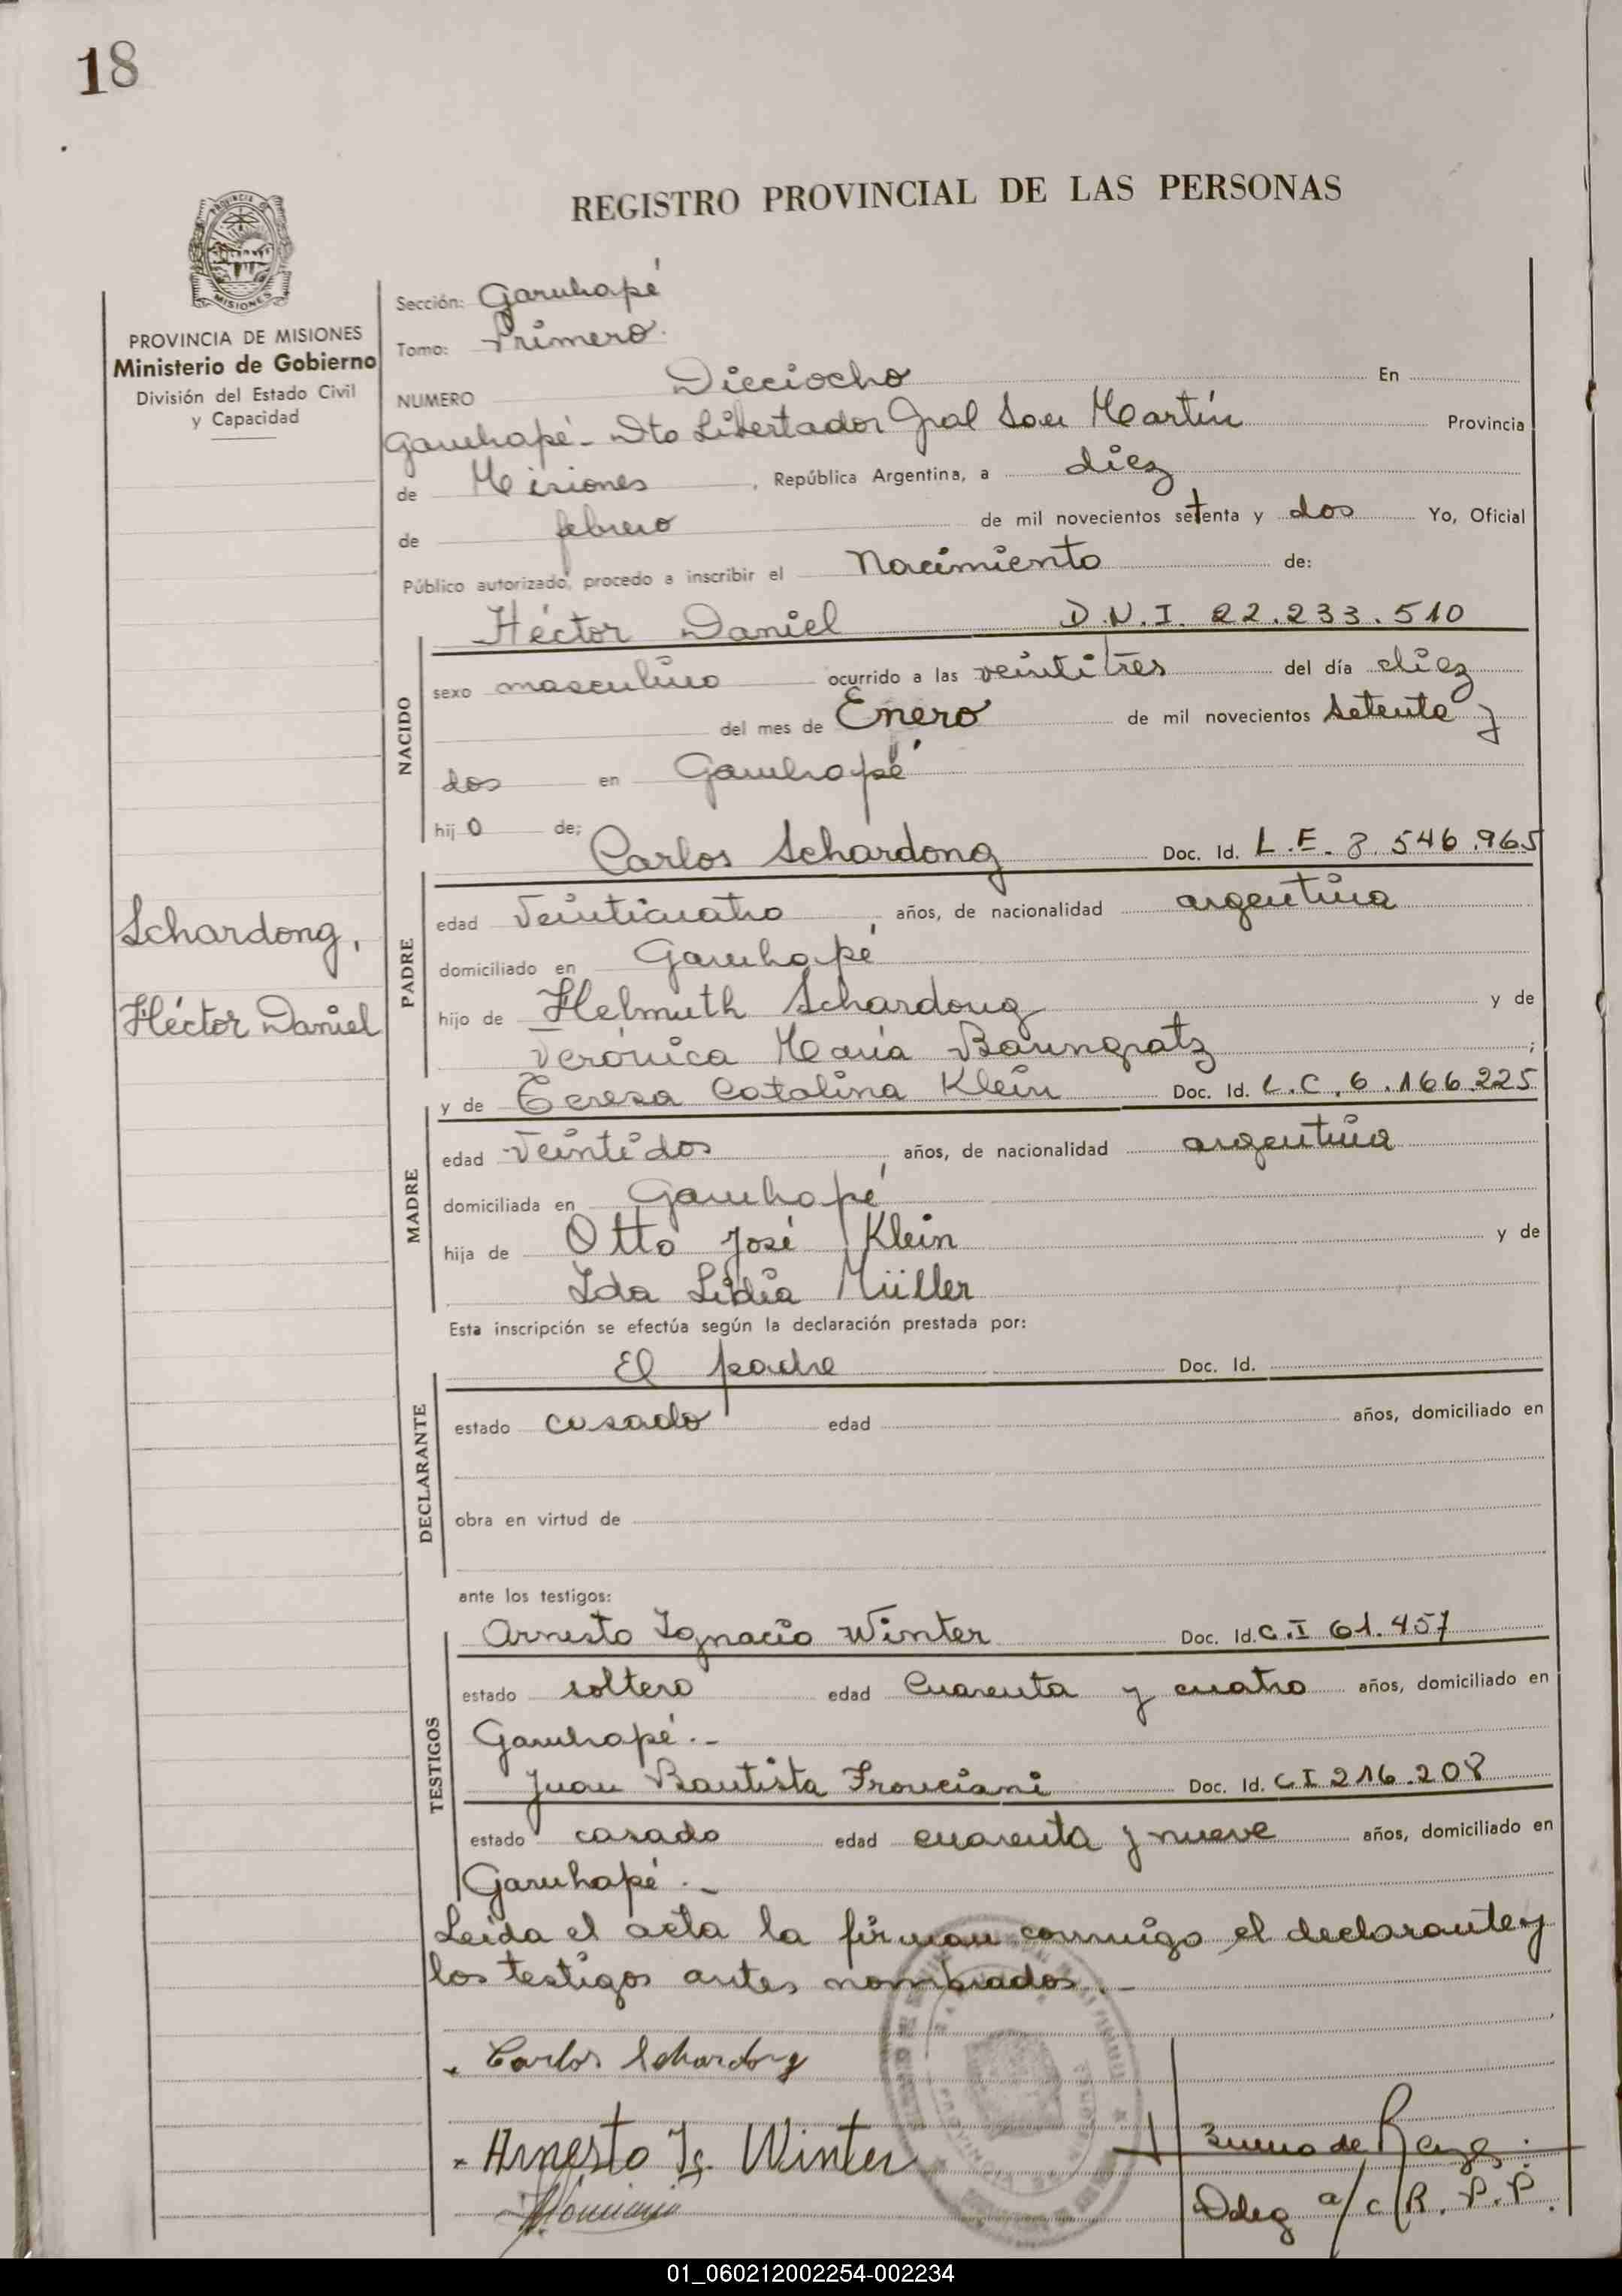 18
REGISTRO PROVINCIAL DE LAS PERSONAS
MISIONES
PROVINCIA DE MISIONES
Ministerio de Gobierno
División del Estado Civil
y Capacidad
Sección: Garuhapé
Tomo: Primero.
NUMERO Dieciocho En
Garuhapé - Dto Libertador Gral San Martín Provincia
de Misiones , República Argentina, a diez
de febrero de mil novecientos setenta y dos Yo, Oficial
Público autorizado, procedo a inscribir el Nacimiento de:
Héctor Daniel D.N.I. 22.233.510
NACIDO
sexo masculino ocurrido a las veintitrés del día diez
del mes de Enero de mil novecientos setenta y
dos en Garuhapé
hijo de;
Carlos Schardong Doc. Id. L.E. 8.546.965
Schardong,
Héctor Daniel
PADRE
edad veinticuatro , años, de nacionalidad argentina
domiciliado en Garuhapé
hijo de Helmuth Schardong y de
Verónica María Baungratz ;
y de Teresa Catalina Klein Doc. Id. L.C. 6.166.225
MADRE
edad veintidos , años, de nacionalidad argentina
domiciliada en Garuhapé
hija de Otto José Klein y de
Ida Lidia Müller
Esta inscripción se efectúa según la declaración prestada por:
El padre Doc. Id.
DECLARANTE
estado casado edad años, domiciliado en
obra en virtud de
ante los testigos:
Arnesto Ignacio Winter Doc. Id. C.I 61.457
TESTIGOS
estado soltero edad cuarenta y cuatro años, domiciliado en
Garuhapé.-
Juan Bautista Doc. Id. C I 216.208
estado casado edad cuarenta y nueve años, domiciliado en
Garuhapé.-
Leida el acta la firman conmigo el declarante y
los testigos antes nombrados.-
Carlos Schardong
Arnesto Ig. Winter
Deleg a/c R.P.P.
01_060212002254-002234